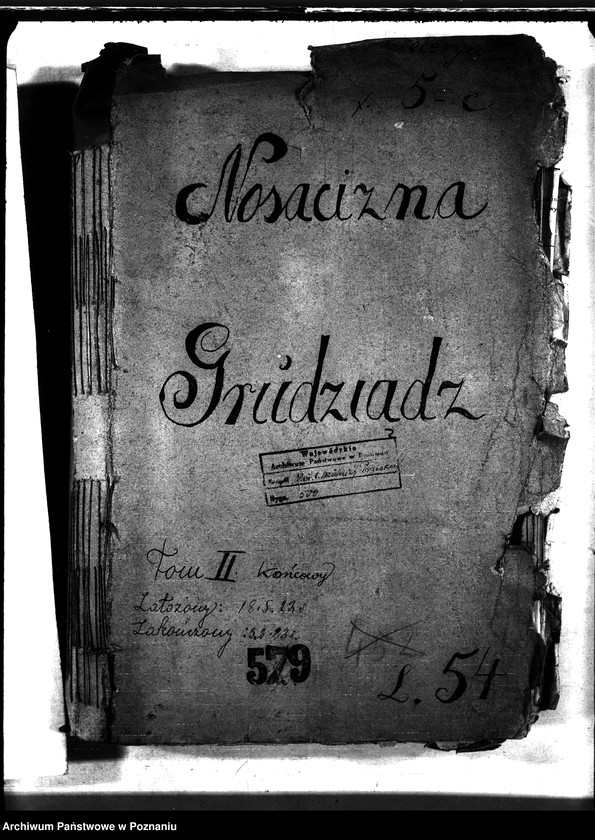 5-c
Nosacizna
Grudziądz
Wojewódzkie
Archiwum Państwowe w Poznaniu
Zespół
Sygn. 579
Tom II Końcowy
Założony: 18.5.23 r.
Zakończony
579
L. 54
Archiwum Państwowe w Poznaniu